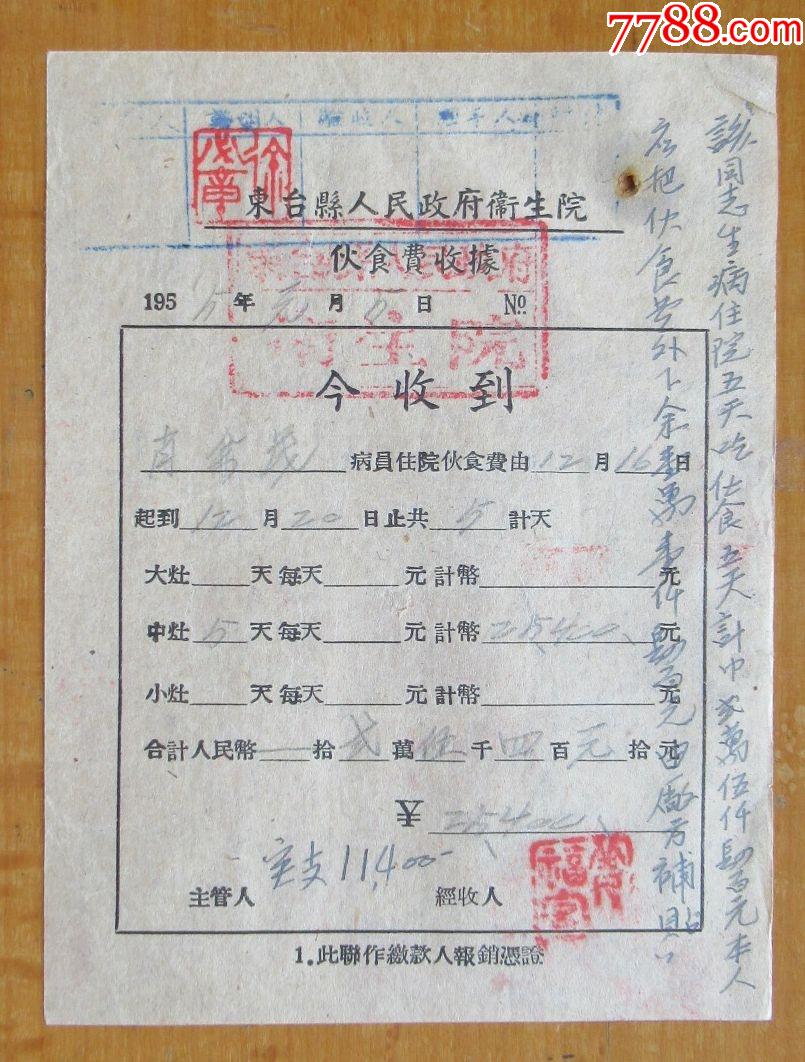 7788.com
東台縣人民政府衞生院
伙食費收據
195 5 年 元 月 5 日 №
衞生院
今收到
病員住院伙食費由 12 月 16 日
起到 12 月 20 日止共 5 計天
大灶 天 每天 元 計幣 元
中灶 5 天 每天 元 計幣 25400 元
小灶 天 每天 元 計幣 元
合計人民幣 拾 貳 萬 伍 千 四 百 元 拾 元
25400
实支 11,400-
主管人 經收人
1.此聯作繳款人報銷憑證
該同志生病住院五天吃伙食五天計巾弍萬伍仟肆百元本人
应把伙食费外下余壹萬壹仟肆百元由廠方補貼